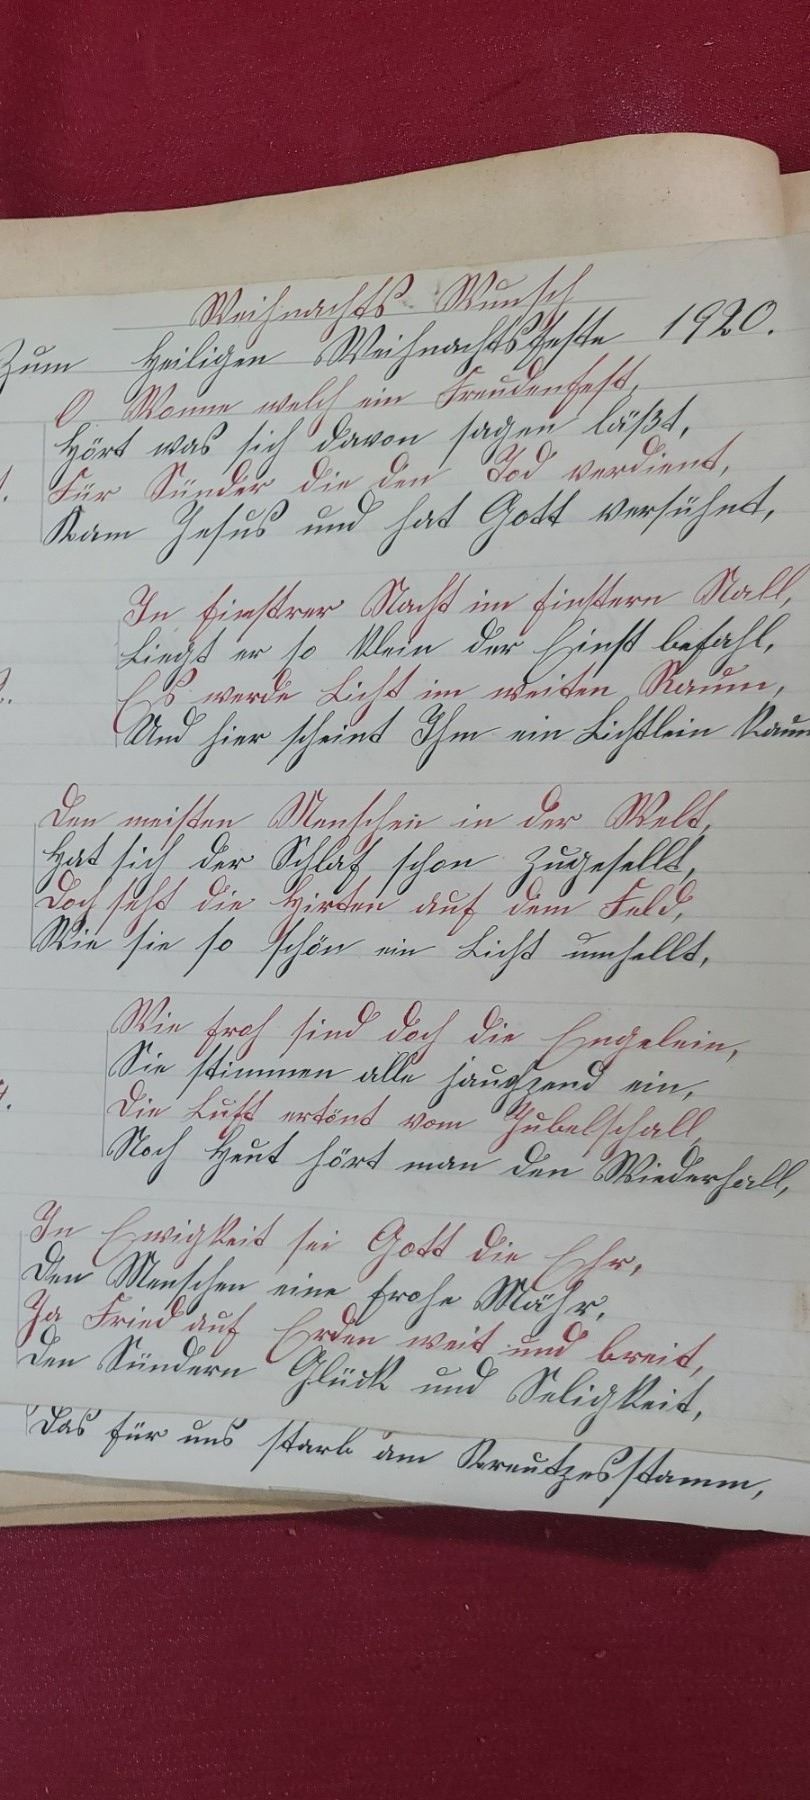 Weihnachts Wunsch
Zum Heiligen Weihnachtsfeste 1920.
O Wonne welch ein Freudenfest,
Hört was sich davon sagen läßt,
Für Sünder die den Tod verdient,
Kam Jesus und hat Gott versühnt,
In finstrer Nacht im finstern Stall,
Liegt er so klein der Einst befahl,
Es werde Licht im weiten Raum,
Und hier scheint Ihm ein Lichtlein kaum
Den meisten Menschen in der Welt,
Hat sich der Schlaf schon zugesellt,
Doch seht die Hirten auf dem Feld,
Wie sie so schön ein Licht umhellt,
Wie froh sind doch die Engelein,
Sie stimmen alle jauchzend ein,
Die Luft ertönt vom Jubelschall,
Noch Heut hört man den Wiederhall,
In Ewigkeit sei Gott die Ehr,
Den Menschen eine frohe Mähr,
Ja Fried auf Erden weit und breit,
Den Sündern Glück und Seligkeit,
Das für uns starb am Kreutzesstamm,